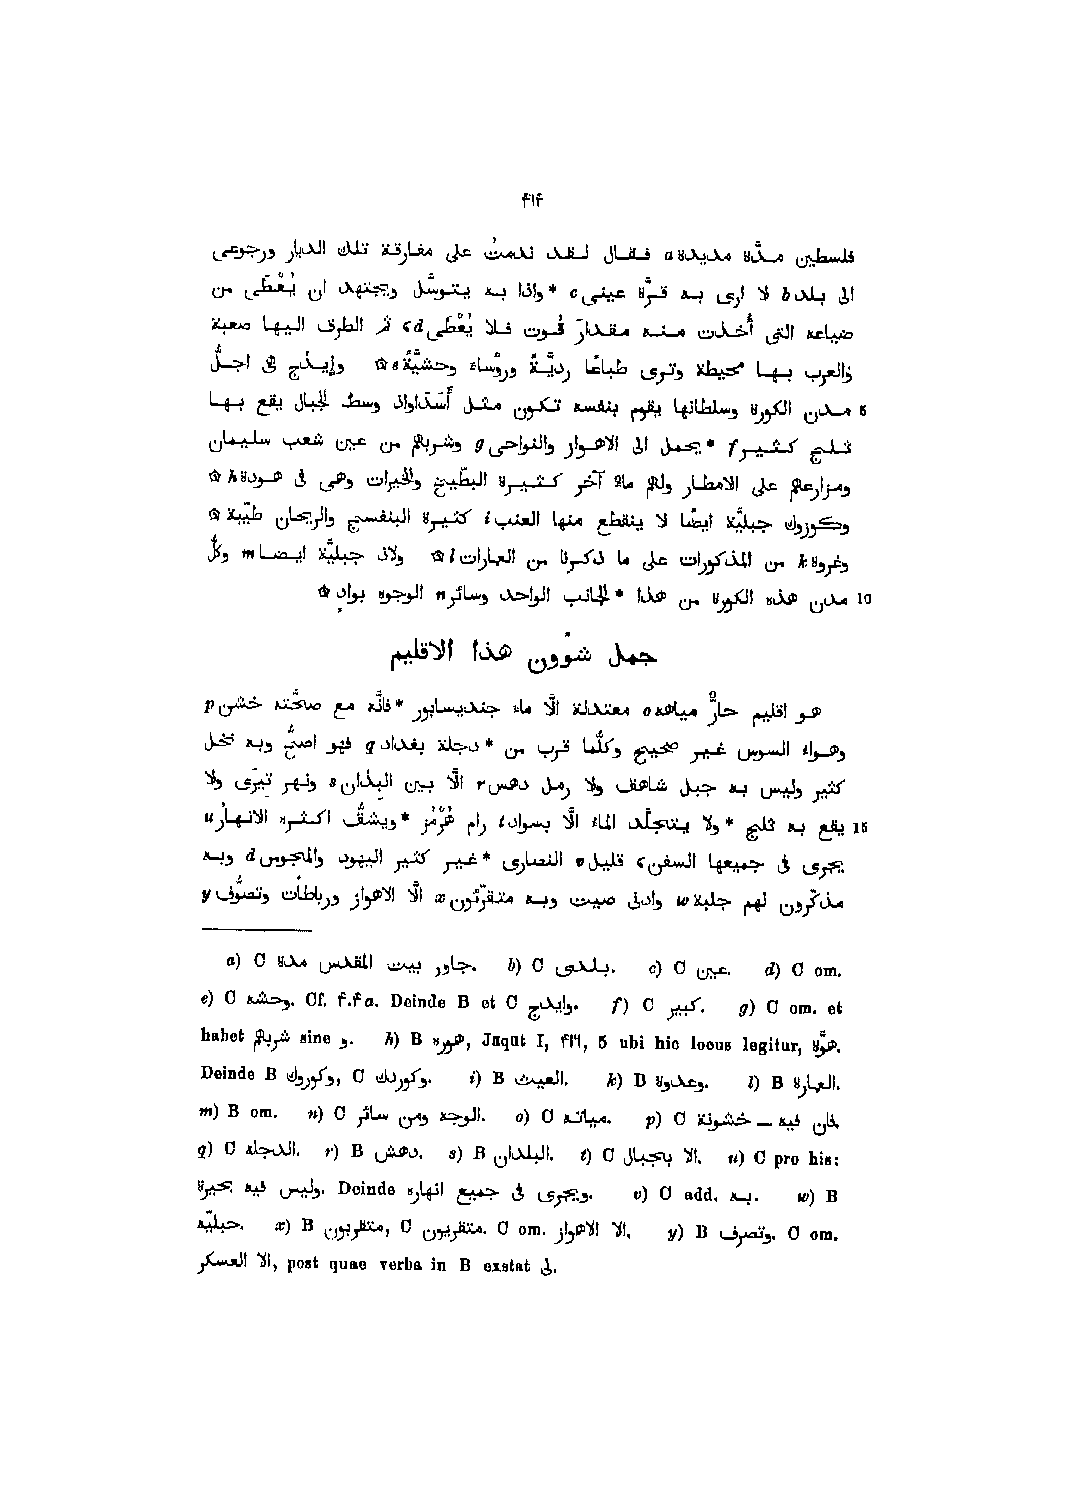 ۴۱۴
فلسطين مدّة مديدة a فقال لقد ندمتُ على مفارقة تلك الديار ورجوعى
الى بلد b لا ارى به قرّة عينى c *واذا به يتوسّل ويجتهد ان يُعْطَى من
ضياعه التى أُخذت منه مقدارَ قُوت فلا يُعْطى d ς ثم الطرف اليها صعبة
والعرب بها محيطة وترى طباعًا رديّةً ورؤساء وحشيّةً e ۞ وإيذَج هى اجلُّ
مدن الكورة وسلطانها يقوم بنفسه تكون مثل أَسَداواذ وسط الجبال يقع بها 5
ثلج كثير f *يحمل الى الاهواز والنواحى g وشربهم من عين شعب سليمان
ومزارعهم على الامطار ولهم ماء آخر كثيرة البطّيخ والخيرات وهى فى هودة h ۞
وكوزوك جبليّة ايضًا لا ينقطع منها العنب i كثيرة البنفسج والريحان طيّبة ۞
وغروة k من المذكورات على ما ذكرنا من العمارات l ۞ ولاذ جبليّة ايضا m وكلُّ
مدن هذه الكورة من هذا *الجانب الواحد وسائر n الوجوه بوادٍ ۞ 10
جمل شؤون هذا الاقليم
هو اقليم حارٌّ مياهه o معتدلة الّا ماء جنديسابور *فانّه مع صحّته خشن p
وهواء السوس غير صحيح وكلّما قرب من *دجلة بغداد q فهو اصحُّ وبه نخل
كثير وليس به جبل شاهق ولا رمل دهس r الّا بين البذان s ونهر تيرَى ولا
يقع به ثلج *ولا يتجلّد الماء الّا بسواد t رام هُرْمُز *ويشقُّ اكثره الانهارُ u 15
يجرى فى جميعها السفن ς قليل v النصارى *غير كثير اليهود والمجوس d وبه
مذكّرون لهم جلبة w وادنى صيت وبه متقرّئون x الّا الاهواز ورباطات وتصوُّف y
a) C جاور بيت المقدس مدة. b) C بلدى. c) C عين. d) C om.
e) C وحشه. Cf. ۴.۴ a. Deinde B et C وايدج. f) C كبير. g) C om. et
habet شربهم sine و. h) B هوره, Jaqut I, ۴۱۹, 5 ubi hic locus legitur, هوّة.
Deinde B وكوروك, C وكوردك. i) B العيث. k) B وعدوة. l) B العمارة.
m) B om. n) C الوجه ومن سائر. o) C مياته. p) C فان فيه — خشونة
q) C الدجله. r) B دهش. s) B البلدان. t) C الا بجبال. u) C pro his:
وليس فيه بحيرة. Deinde ويجرى فى جميع انهاره. v) C add. به. w) B
حبليّه. x) B متقربون, C متقريون. C om. الا الاهواز. y) B وتصرف. C om.
الا العسكر, post quae verba in B exstat فى.